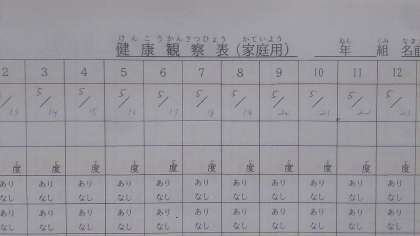 けんこうかんさつひょう かていよう ねん くみ なま
健康観察表(家庭用) 年 組 名前
2 3 4 5 6 7 8 9 10 11 12
5/13 5/14 5/15 5/16 5/17 5/18 5/19 5/20 5/21 5/22 5/23
ど ど ど ど ど ど ど ど ど ど ど
度 度 度 度 度 度 度 度 度 度 度
あり あり あり あり あり あり あり あり あり あり あり
なし なし なし なし なし なし なし なし なし なし なし
あり あり あり あり あり あり あり あり あり あり あり
なし なし なし なし なし なし なし なし なし なし なし